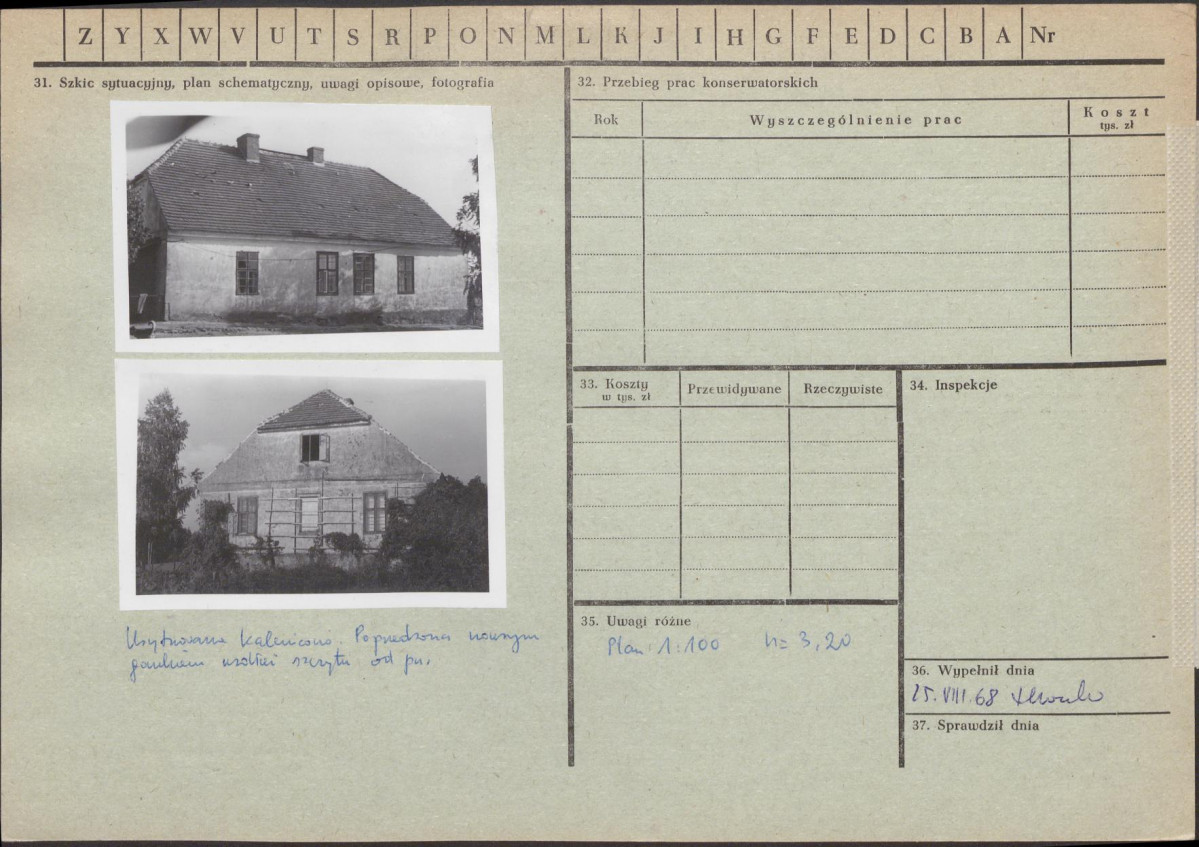 Z Y X W V U T S R P O N M L K J I H G F E D C B A Nr
31. Szkic sytuacyjny, plan schematyczny, uwagi opisowe, fotografia
Usytuowana kalenicowo. Poprzedzona nowszym
gankiem wzdłuż szczytu od pn.
32. Przebieg prac konserwatorskich
Rok
Wyszczególnienie prac
Koszt
tys. zł
33. Koszty
w tys. zł
Przewidywane
Rzeczywiste
34. Inspekcje
35. Uwagi różne
Plan 1:100 h= 3,20
36. Wypełnił dnia
25.VIII.68
37. Sprawdził dnia